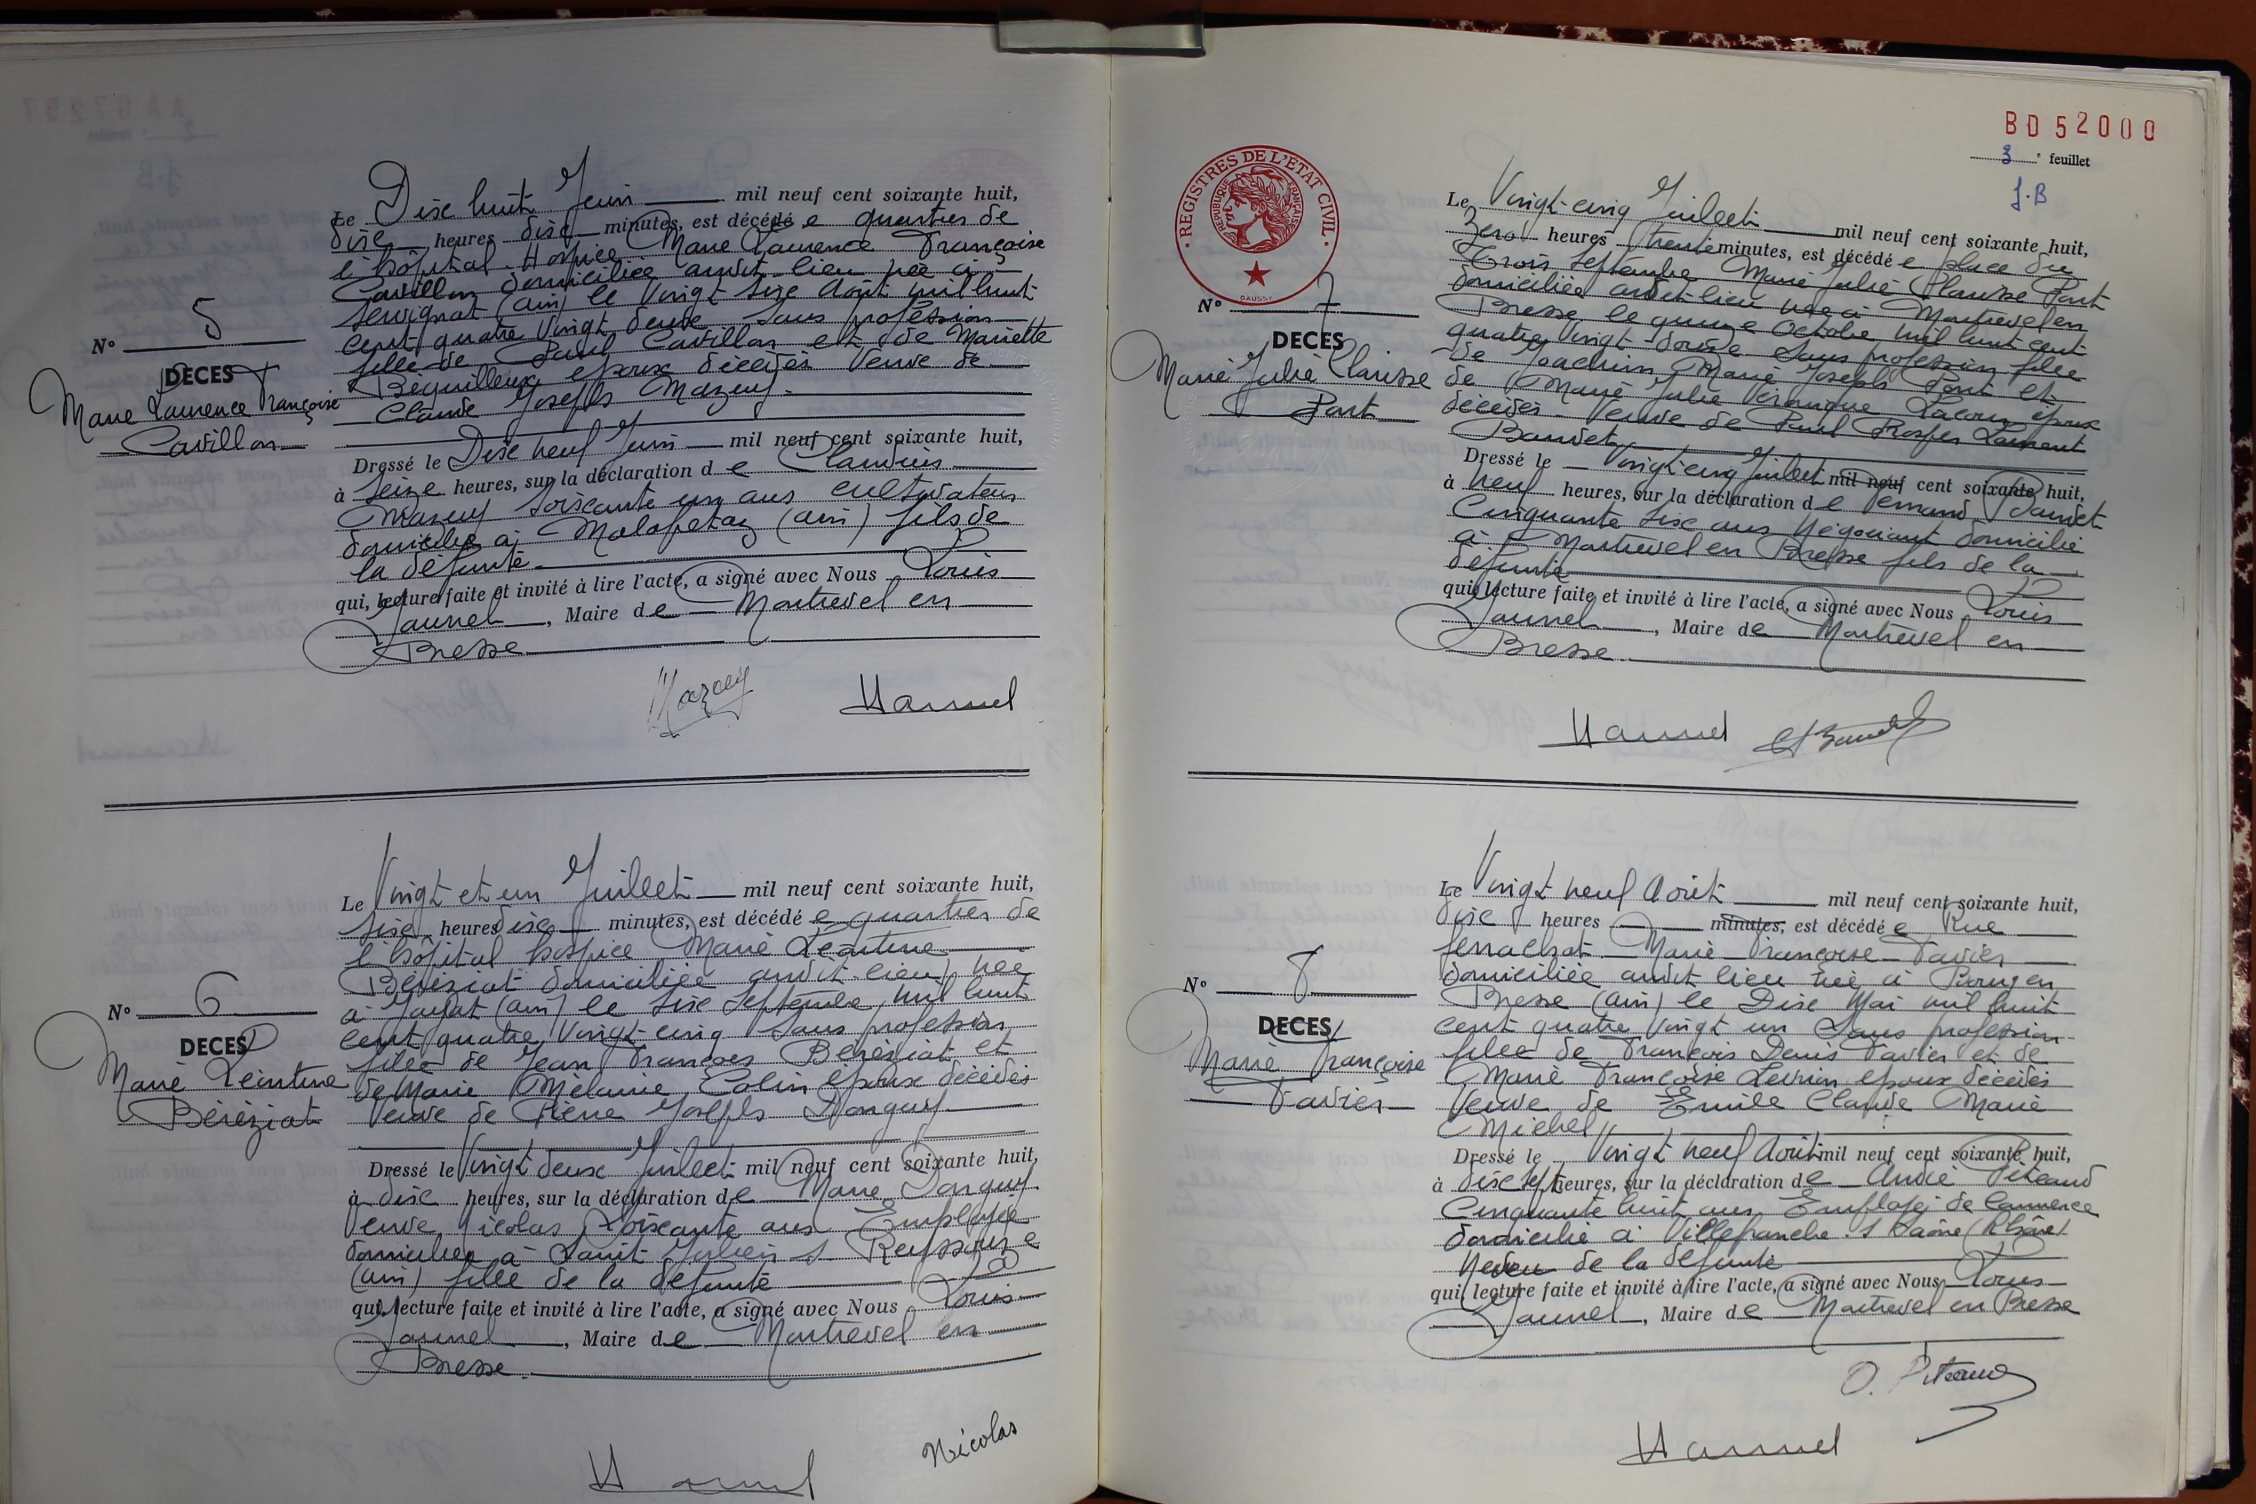 N° 5
DECES
Marie Laurence Françoise
Cavillon
Le Dix huit Juin mil neuf cent soixante huit,
dix heures dix minutes, est décédé e quartier de
l'hôpital-Hospice Marie Laurence Françoise
Cavillon domiciliée audit lieu née à
Servignat (ain) le Vingt six Août mil huit
cent quatre Vingt deux Sans profession
fille de Paul Cavillon et de Mariette
Bequilleux époux décédés Veuve de
Claude Joseph Mazuy.
Dressé le Dix neuf Juin mil neuf cent soixante huit,
à seize heures, sur la déclaration d e Claudius
Mazuy Soixante un ans cultivateur
domicilié à Malafretaz (ain) fils de
la défunte
qui, lecture faite et invité à lire l'acte, a signé avec Nous Louis
Jaunel, Maire de Montrevel en
Bresse
Mazuy
N° 6
DECES
Marie Léontine
Béréziat
Le Vingt et un Juillet mil neuf cent soixante huit,
six heures dix minutes, est décédé e quartier de
l'hôpital hospice Marie Léontine
Béréziat domiciliée audit lieu, née
à Jayat (ain) le six Septembre mil huit
cent quatre Vingt cinq Sans profession
fille de Jean François Béréziat et
de Marie Mélanie Colin époux décédés
Veuve de Pierre Joseph Donguy
Dressé le Vingt deux Juillet mil neuf cent soixante huit,
à dix heures, sur la déclaration d e Marie Donguy
Veuve Nicolas Soixante ans Employée
domiciliée à Saint Julien s Reyssouze
(ain) fille de la défunte
qui, lecture faite et invité à lire l'acte, a signé avec Nous Louis
Jaunel, Maire de Montrevel en
Bresse.
Nicolas
BD 52000
3e feuillet
J.B
REGISTRES DE L'ETAT CIVIL
REPUBLIQUE FRANÇAISE
DAUSSY
N° 7
DECES
Marie Julie Clarisse
Pont
Le Vingt-cinq Juillet mil neuf cent soixante huit,
Zero heures trente minutes, est décédé e place du
Trois Septembre Marie Julie Clarisse Pont
domiciliée audit lieu née à Montrevel en
Bresse le quinze Octobre mil huit cent
quatre Vingt douze Sans profession fille
de Joachim Marie Joseph Pont et
de Marie Julie Véronique Lacour époux
décédés Veuve de Paul Prosper Laurent
Baudet
Dressé le Vingt-cinq Juillet mil neuf cent soixante huit,
à neuf heures, sur la déclaration d e Fernand Baudet
Cinquante six ans Négociant domicilié
à Montrevel en Bresse fils de la
défunte
qui, lecture faite et invité à lire l'acte, a signé avec Nous Louis
Jaunel, Maire de Montrevel en
Bresse.
N° 8
DECES
Marie Françoise
Favier
Le Vingt neuf Août mil neuf cent soixante huit,
dix heures minutes, est décédé e Rue
Ferrachat Marie Françoise Favier
domiciliée audit lieu née à Bourg en
Bresse (ain) le Dix Mai mil huit
cent quatre Vingt un Sans profession
fille de François Denis Favier et de
Marie Françoise Levrier époux décédés
Veuve de Emile Claude Marie
Michel
Dressé le Vingt neuf Août mil neuf cent soixante huit,
à dix sept heures, sur la déclaration de André Piteaud
Cinquante huit ans Employé de Commerce
domicilié à Villefranche s Saône (Rhône)
Neveu de la défunte
qui, lecture faite et invité à lire l'acte, a signé avec Nous Louis
Jaunel, Maire de Montrevel en Bresse